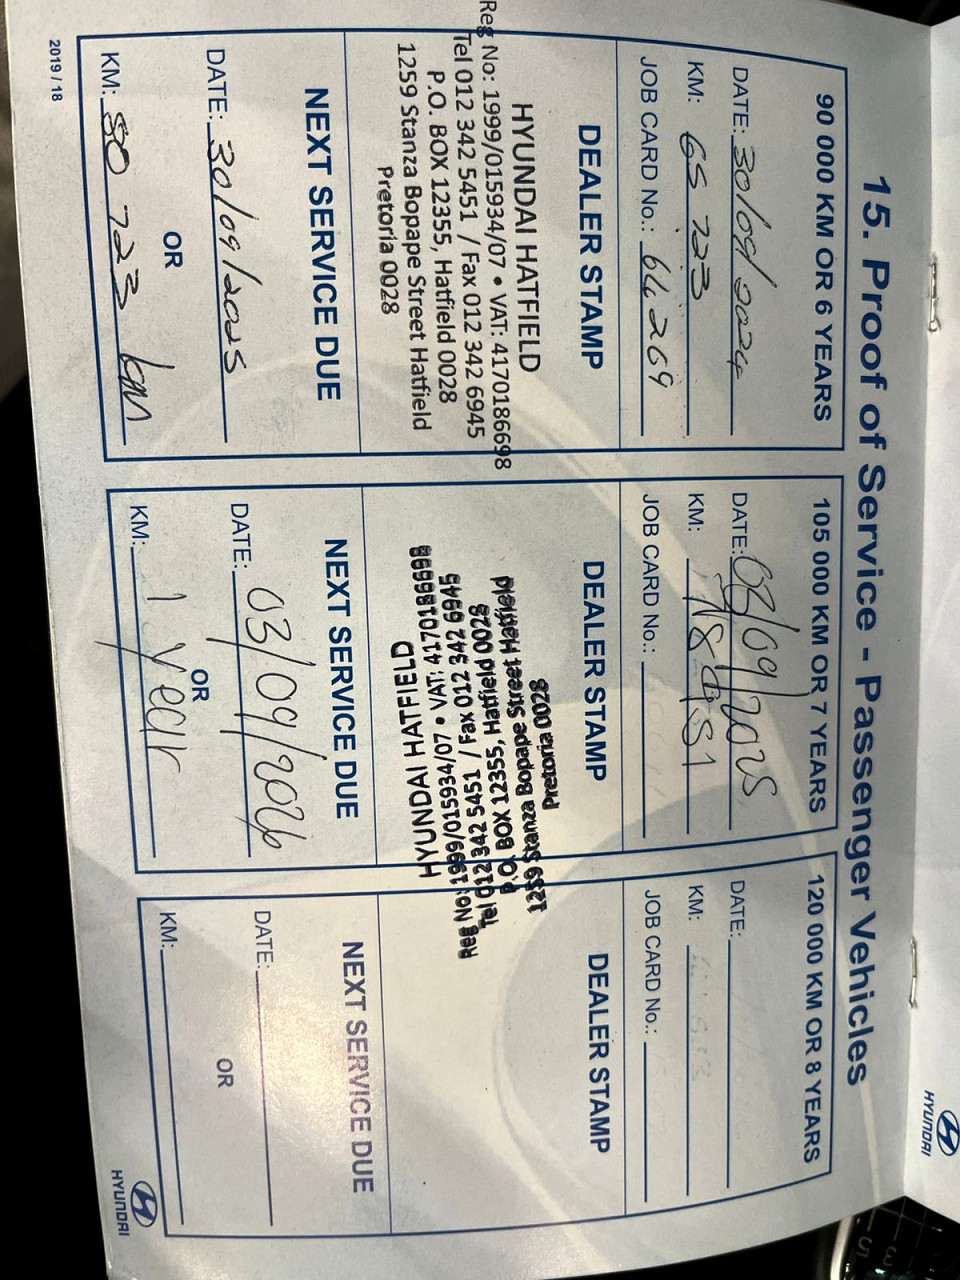 15. Proof of Service - Passenger Vehicles
90 000 KM OR 6 YEARS
DATE: 30/09/2024
KM: 65 723
JOB CARD No.: 64269
DEALER STAMP
HYUNDAI HATFIELD
Reg No: 1999/015934/07 • VAT: 4170186698
Tel 012 342 5451 / Fax 012 342 6945
P.O. BOX 12355, Hatfield 0028
1259 Stanza Bopape Street Hatfield
Pretoria 0028
NEXT SERVICE DUE
DATE: 30/09/2025
OR
KM: 80 723 km
105 000 KM OR 7 YEARS
DATE: 03/09/2025
KM:
JOB CARD No.:
DEALER STAMP
HYUNDAI HATFIELD
Reg No: 1999/015934/07 • VAT: 4170186698
Tel 012 342 5451 / Fax 012 342 6945
P.O. BOX 12355, Hatfield 0028
1259 Stanza Bopape Street Hatfield
Pretoria 0028
NEXT SERVICE DUE
DATE: 03/09/2026
OR
KM: 1 year
120 000 KM OR 8 YEARS
DATE:
KM:
JOB CARD No.:
DEALER STAMP
NEXT SERVICE DUE
DATE:
OR
KM:
2019 / 18
HYUNDAI
HYUNDAI